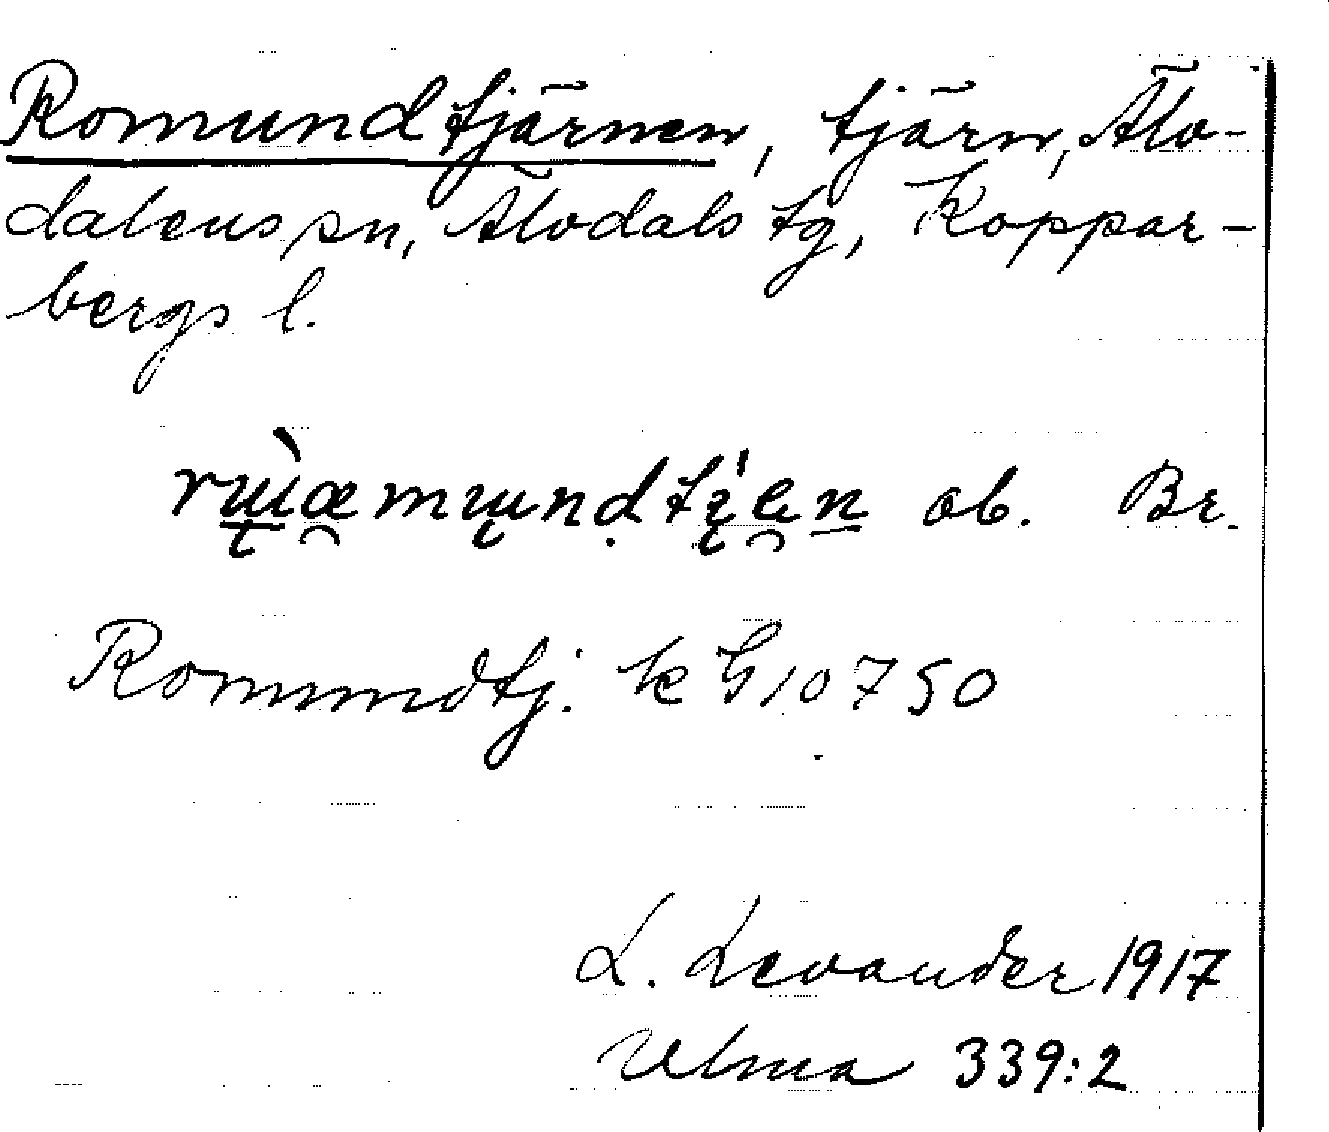 Romundtjärnen, tjärn, Älv-
dalens sn, Älvdals tg, Koppar-
bergs l.
ob. Br.
Romundtj. k G 10750
L. Levander 1917
Ulma 339:2